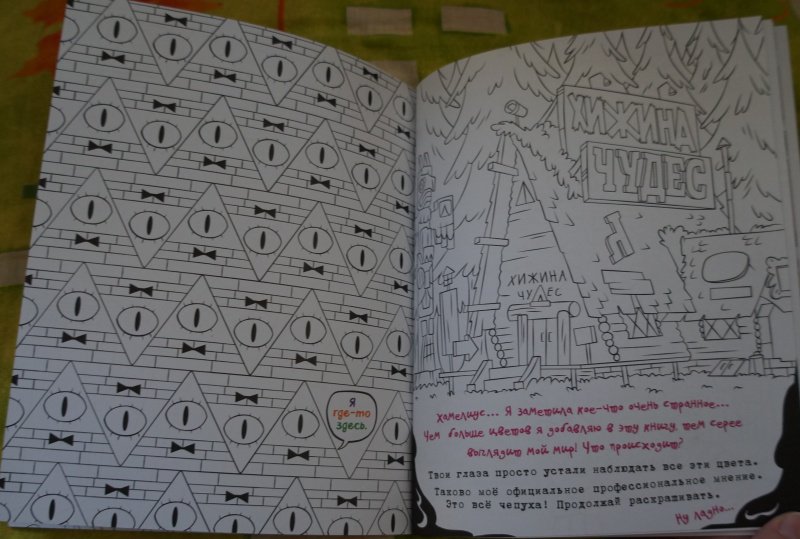 Я
где-то
здесь.
ХИЖИНА
ЧУДЕС
ХИЖИНА
ЧУДЕС
Хамелиус... Я заметила кое-что очень странное...
Чем больше цветов я добавляю в эту книгу, тем серее
выглядит мой мир! Что происходит?
Твои глаза просто устали наблюдать все эти цвета.
Таково моё официальное профессиональное мнение.
Это всё чепуха! Продолжай раскрашивать.
Ну ладно...